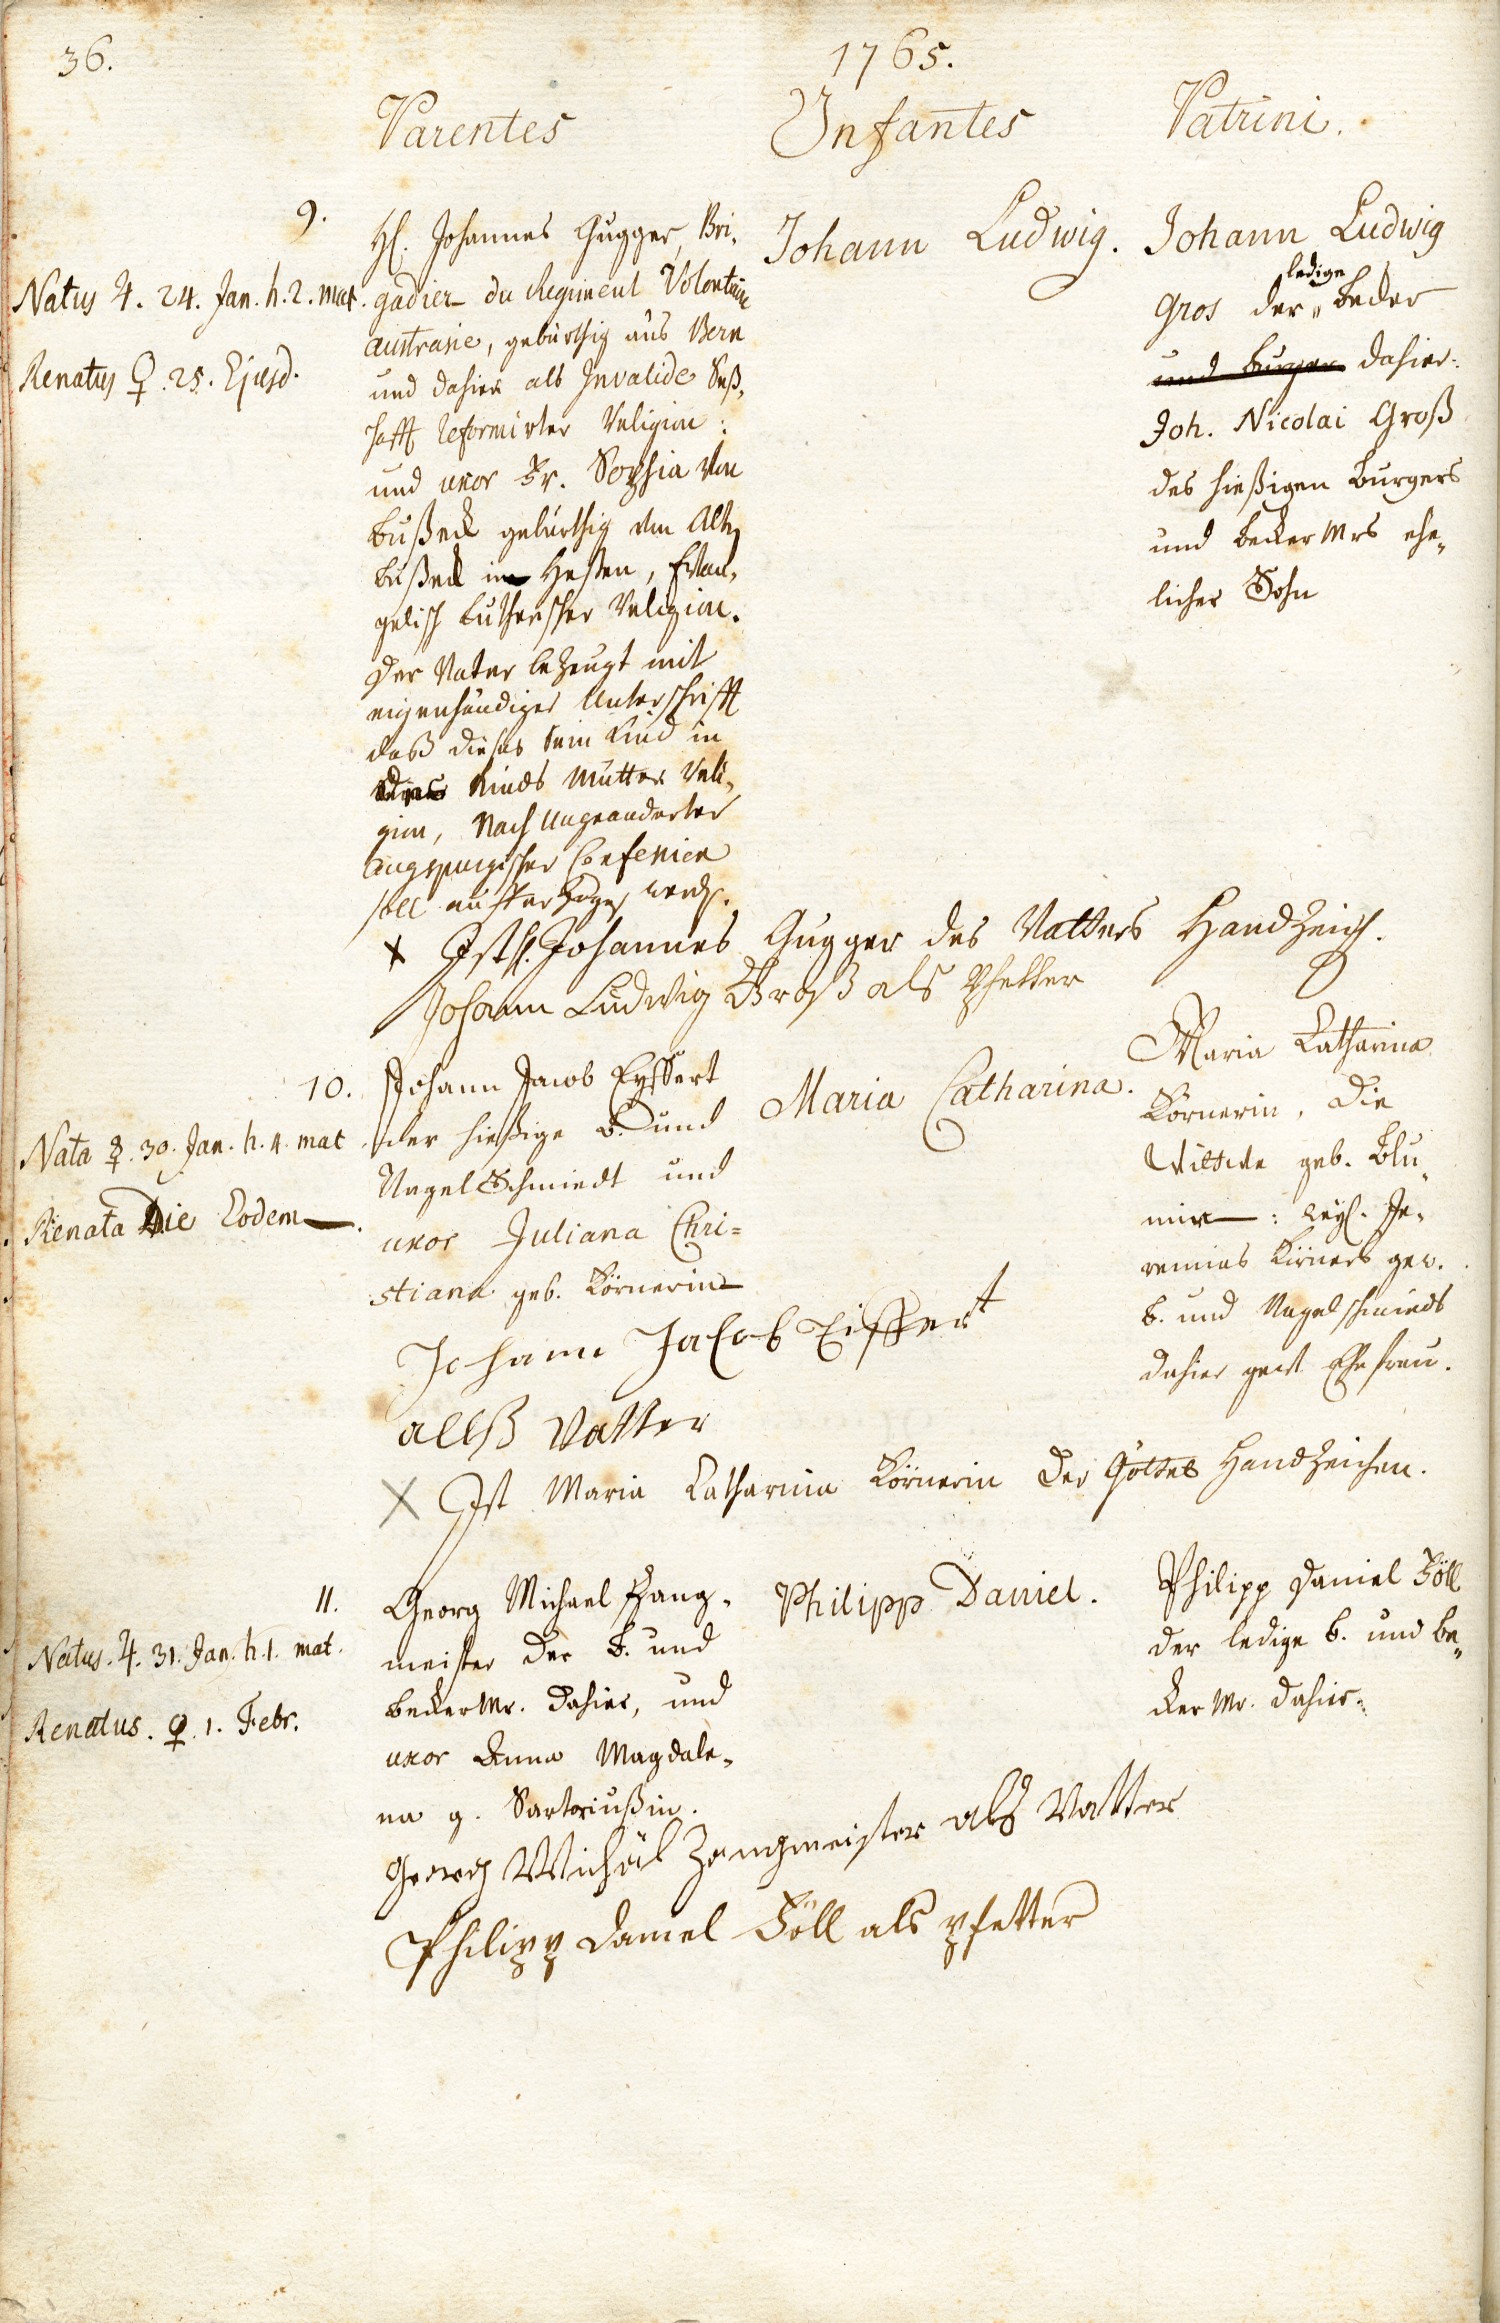 36.
1765.
Parentes
Infantes
Patrini.
9.
Natus ♃. 24. Jan. h. 2. mat.
Renatus ♀. 25. Ejusd.
H. Johannes Gugger, Bri„
gadier du Regiment Volontaire
austrasie, gebürthig aus Bern
und dahier als Invalide Seß„
hafft reformirter Religion:
und uxor Fr. Sophia von
Bußeck gebürthig von Alten
Bußeck in Hessen, Evan„
gelisch Lutherscher Religion.
Der Vater bezeugt mit
eigenhändiger Unterschrifft
daß dieses sein Kind in
der Kinds Mutter Reli„
gion, nach Ungeanderter
augspurgischer Confession
soll aufferzogen werden.
Johann Ludwig.
Johann Ludwig
Gros der ledige Becker
und burger dahier.
Joh. Nicolai Groß
des hießigen Burgers
und Becker Mrs ehe„
licher Sohn
x Ist H. Johannes Gugger des Vatters Handzeich.
Johann Ludwig Groß als Pfetter
10.
Nata ☿. 30. Jan. h. 4. mat
Renata Die Eodem.
Johann Jacob Eyssert
der hießige B. und
Nagel Schmiedt und
uxor Juliana Chri=
stiana geb. Körnerin
Maria Catharina.
Maria Catharina
Körnerin, die
Wittwe geb. Blu„
min: weyl. Je„
remias Körners gew.
B. und Nagelschmieds
dahier gewes. Ehefrau.
Johann Jacob Eissert
allß Vatter
X Ist Maria Catharina Körnerin der Göttel Handzeichen.
11.
Natus. ♃. 31. Jan. h. 1. mat.
Renatus. ♀. 1. Febr.
Georg Michael Zang„
meister der B. und
Becker Mr. dahier, und
uxor Anna Magdale„
na g. Sartoriußin.
Philipp Daniel.
Philipp Daniel Föll
der ledige B. und Be„
cker Mr. dahier.
Georg Michäl Zangmeister als Vatter
Philipp Daniel Föll als Pfetter